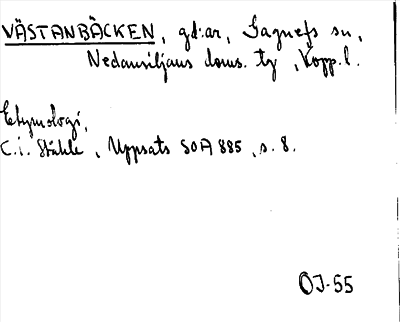 VÄSTANBÄCKEN, gd:ar, Gagnefs sn,
Nedansiljans doms. tg, Kopp. l.
Etymologi,
C.I. Ståhle, Uppsats SOA 885, s. 8.
OJ-55